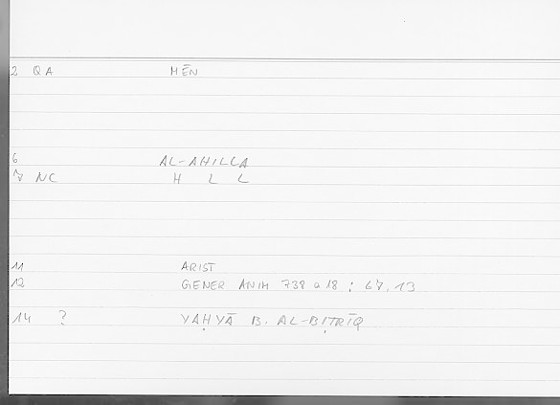 2 QA MĒN
6 AL-AHILLA
7 NC H L L
11 ARIST
12 GENER ANIM 738 a 18 : 67,13
14 ? YAḤYĀ B. AL-BIṬRĪQ